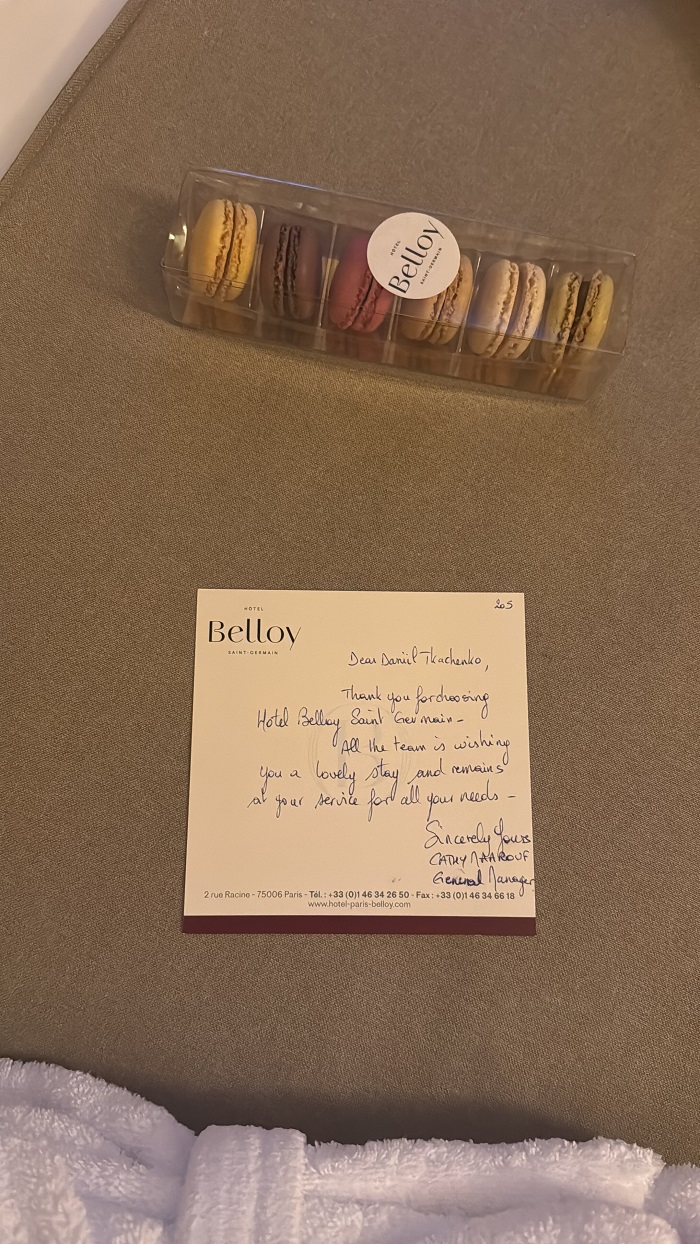 HOTEL
Belloy
SAINT-GERMAIN
205
HOTEL
Belloy
SAINT-GERMAIN
Dear Daniil Tkachenko,
Thank you for choosing
Hotel Belloy Saint Germain -
All the team is wishing
you a lovely stay and remains
at your service for all your needs -
Sincerely Yours
CATHY MAAROUF
General Manager
2 rue Racine - 75006 Paris - Tél. : +33 (0)1 46 34 26 50 - Fax : +33 (0)1 46 34 66 18
www.hotel-paris-belloy.com